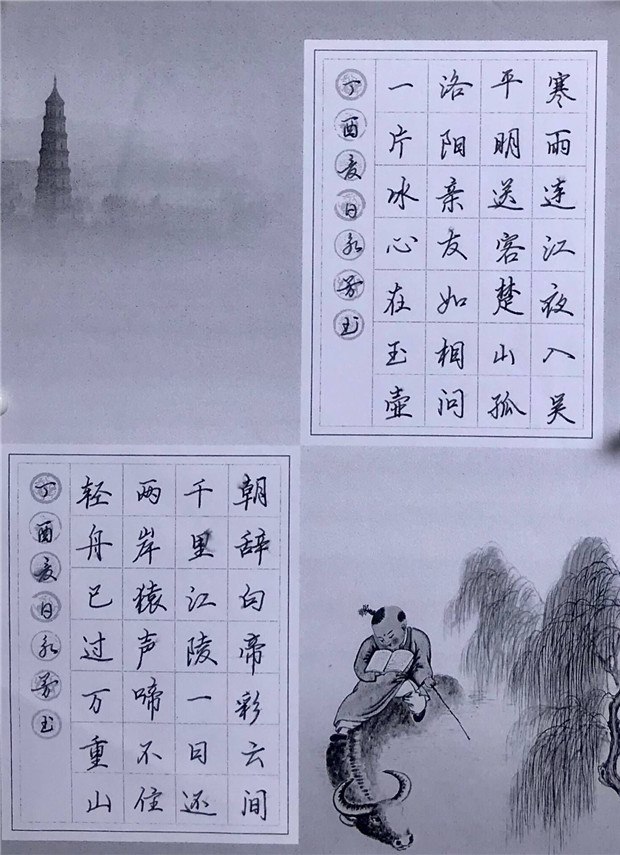 寒雨连江夜入吴
平明送客楚山孤
洛阳亲友如相问
一片冰心在玉壶
丁酉夏日永书
朝辞白帝彩云间
千里江陵一日还
两岸猿声啼不住
轻舟已过万重山
丁酉夏日永书